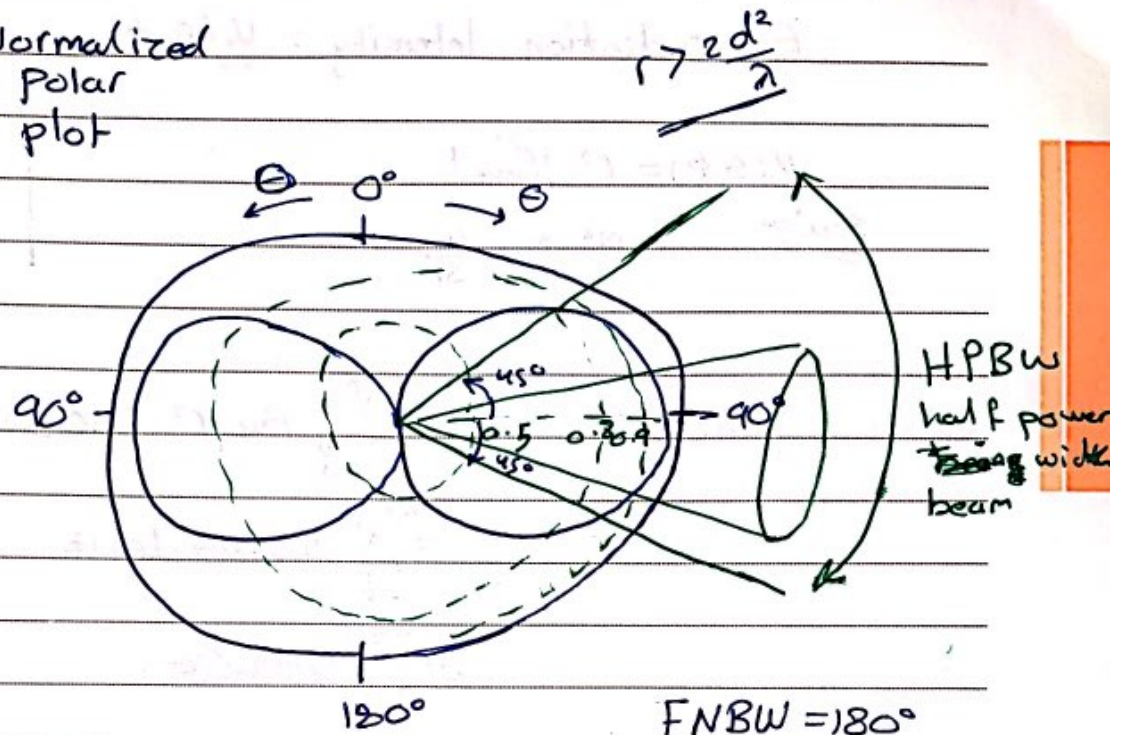 Normalized
polar
plot
r > 2 d²/λ
Θ 0° Θ
45°
90° 0.5 90°
45°
HPBW
half power
width
beam
180°
FNBW = 180°